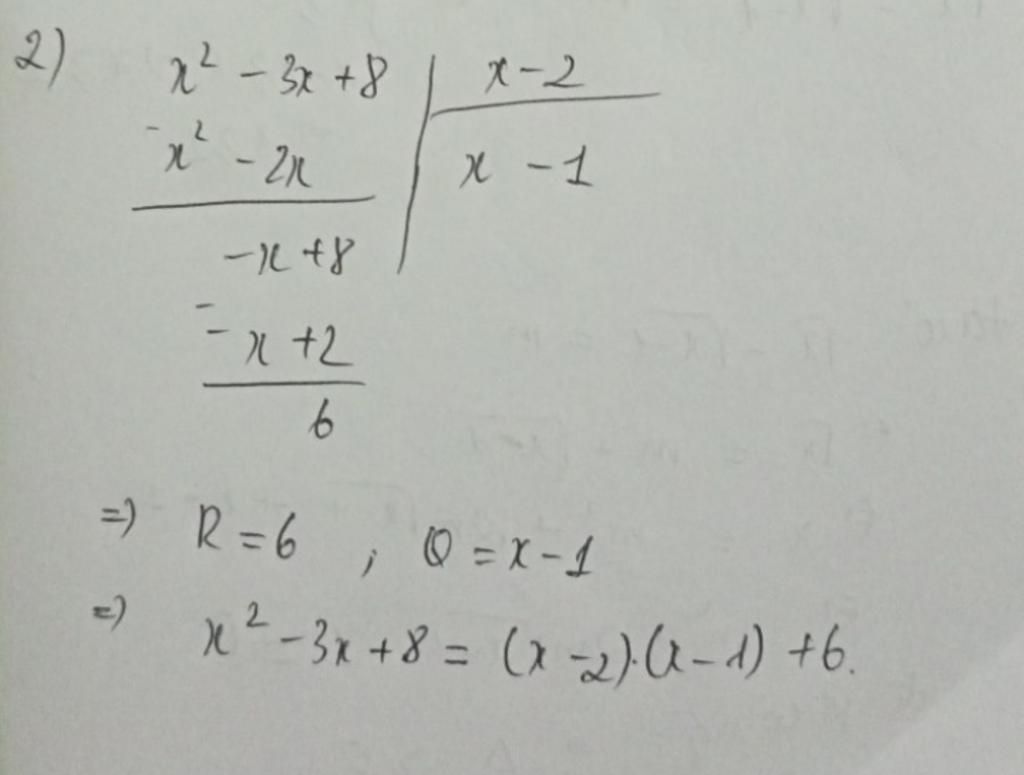 2) x² - 3x + 8 | x - 2
- x² - 2x | x - 1
-x + 8
-
- x + 2
6
=) R = 6 , Q = x - 1
=) x² - 3x + 8 = (x - 2).(x - 1) + 6.